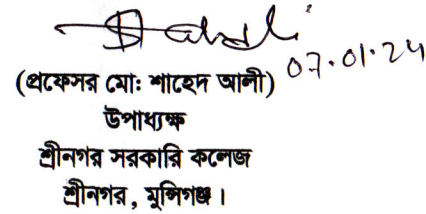 07.01.24
(প্রফেসর মো: শাহেদ আলী)
উপাধ্যক্ষ
শ্রীনগর সরকারি কলেজ
শ্রীনগর, মুন্সিগঞ্জ।